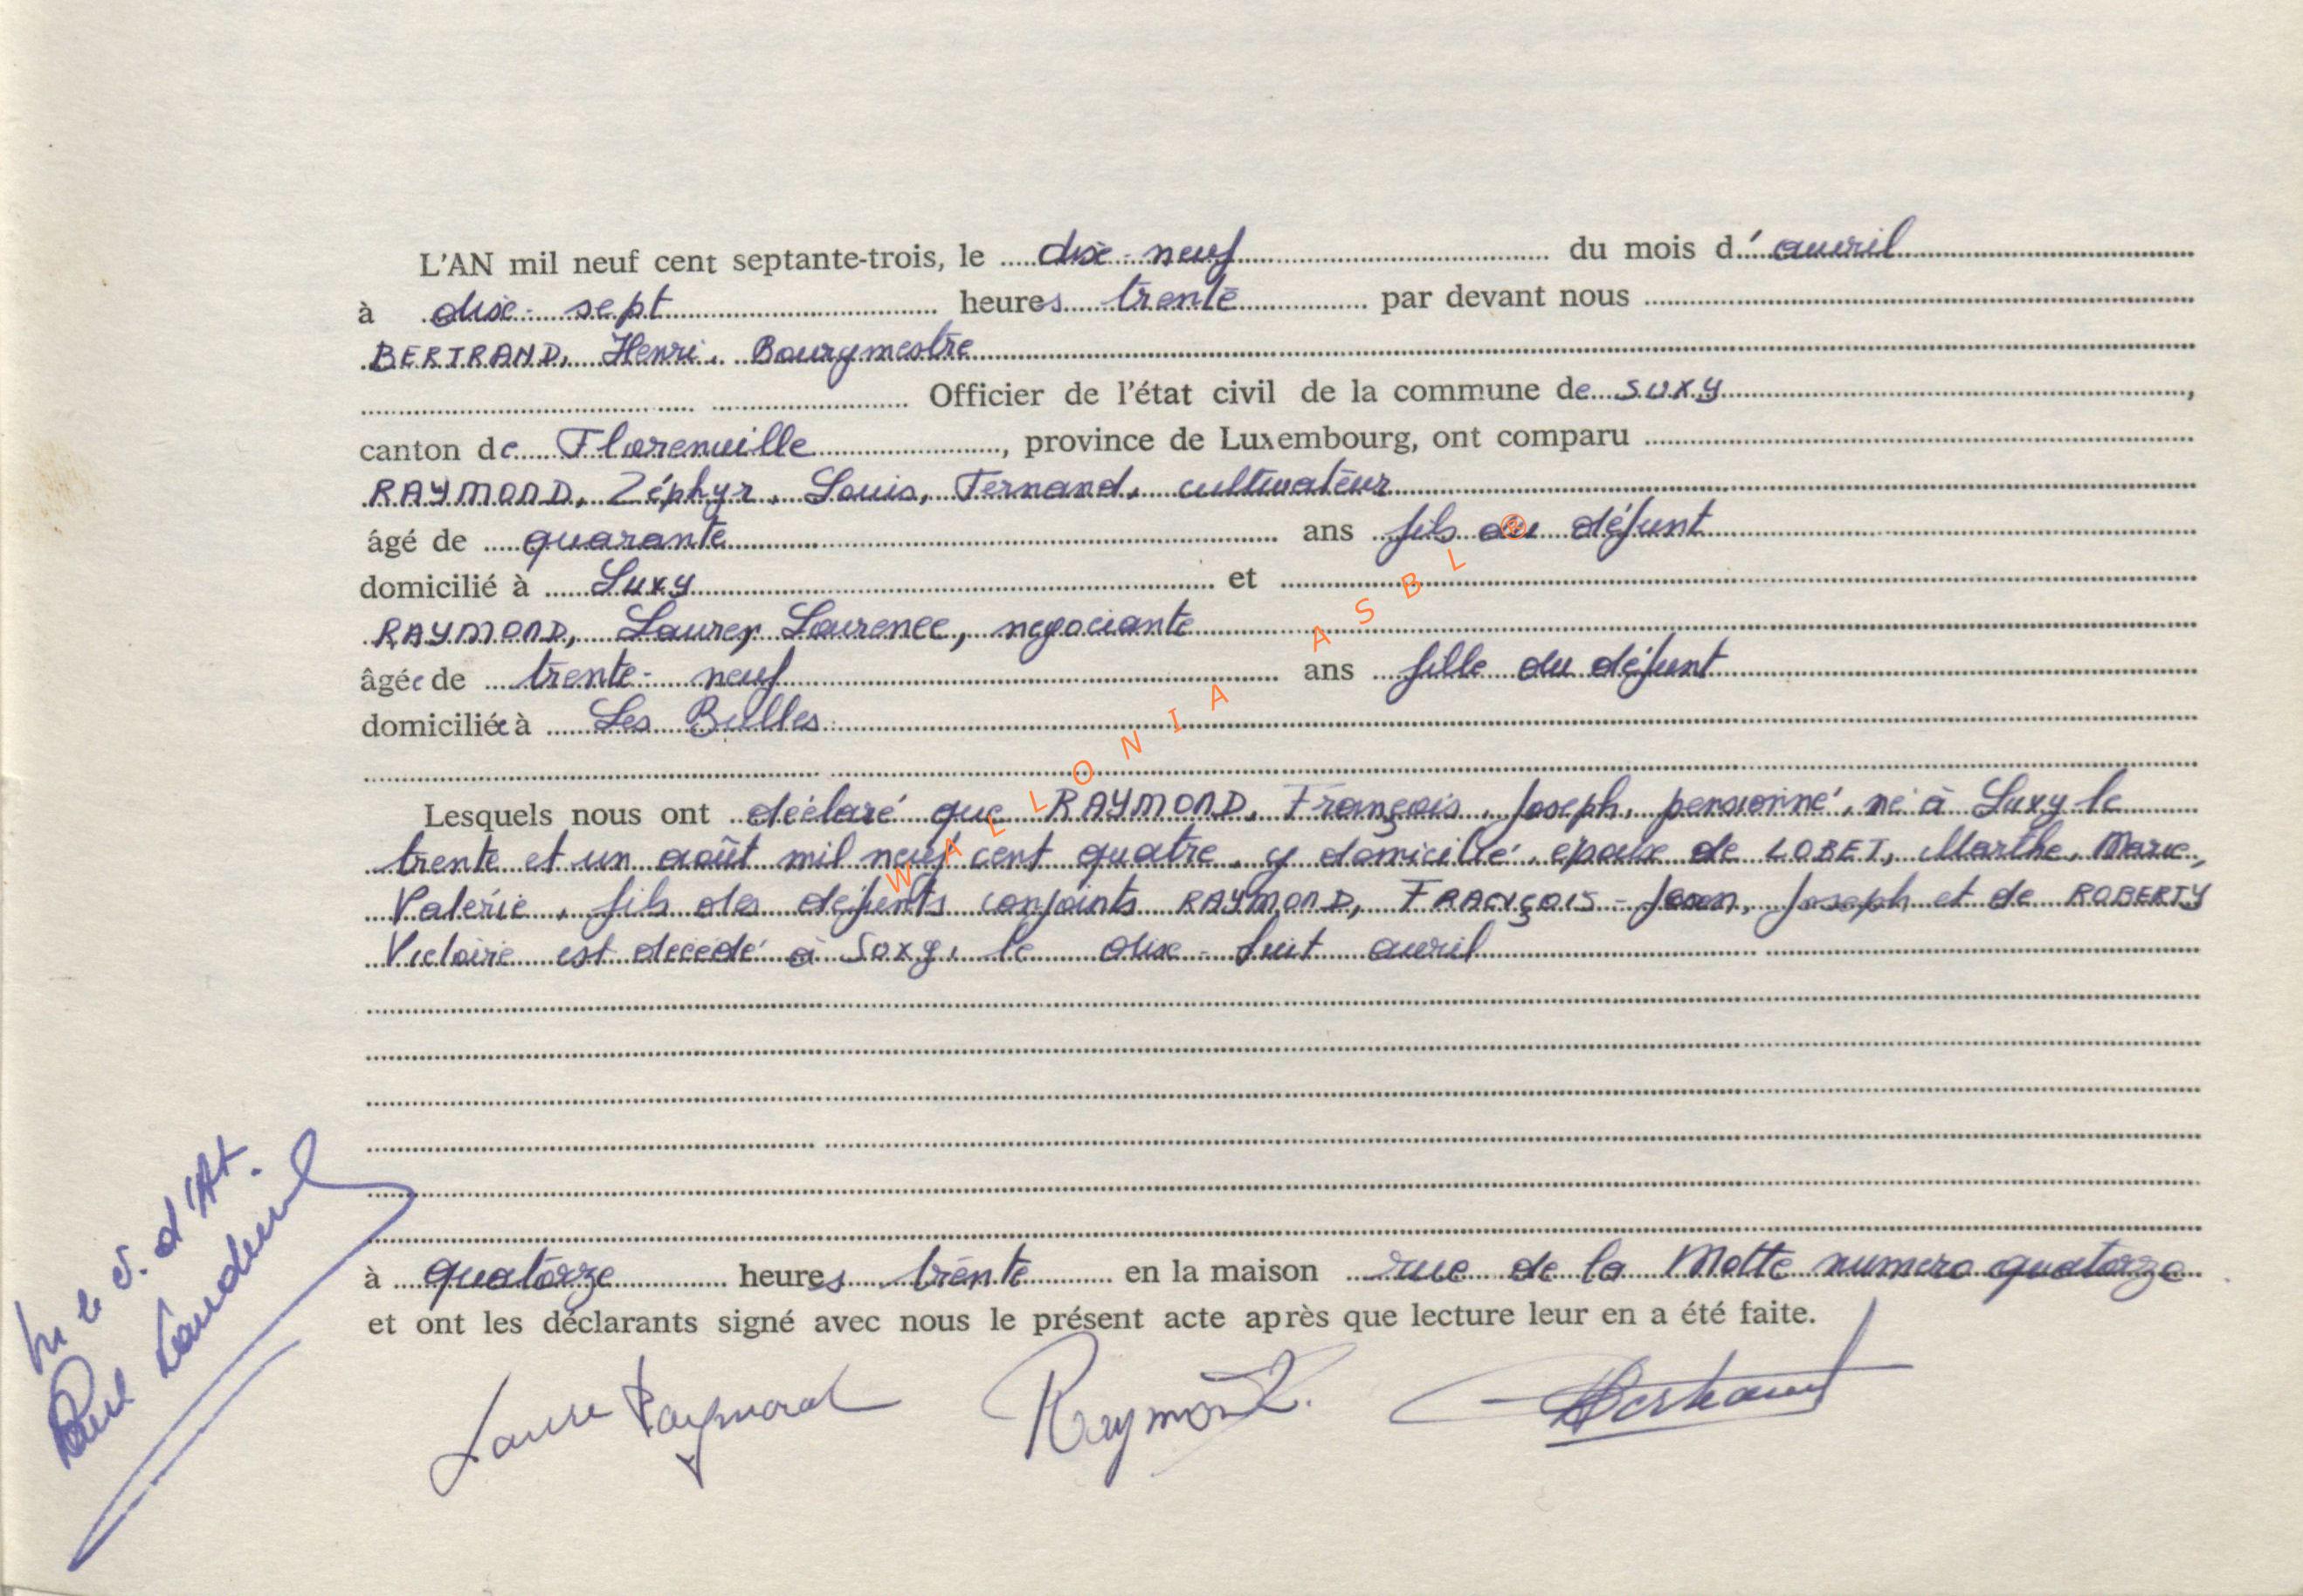 L'AN mil neuf cent septante-trois, le dix-neuf du mois d'avril
à dix-sept heures trente par devant nous
BERTRAND, Henri, Bourgmestre
Officier de l'état civil de la commune de SUXY,
canton de Florenville, province de Luxembourg, ont comparu
RAYMOND, Zéphyr, Louis, Fernand, cultivateur
âgé de quarante ans fils du défunt
domicilié à Suxy et
RAYMOND, Laure, Laurence, negociante
âgée de trente-neuf ans fille du défunt
domiciliée à Les Bulles
Lesquels nous ont déclaré que RAYMOND, François, Joseph, pensionné, né à Suxy le
trente et un août mil neuf cent quatre, y domicilié, époux de LOBET, Marthe, Marie,
Valérie, fils des défunts conjoints RAYMOND, FRANÇOIS-Jean, Joseph et de ROBERTY
Victoire est décédé à Suxy, le dix-huit avril
à quatorze heures trente en la maison rue de la Motte numero quatorze
et ont les déclarants signé avec nous le présent acte après que lecture leur en a été faite.
Laure Raymond Raymond Z. HBertrand
WALLONIA ASBL ®